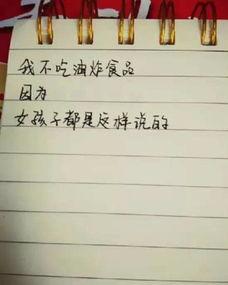 我不吃油炸食品
因为
女孩子都是这样说的